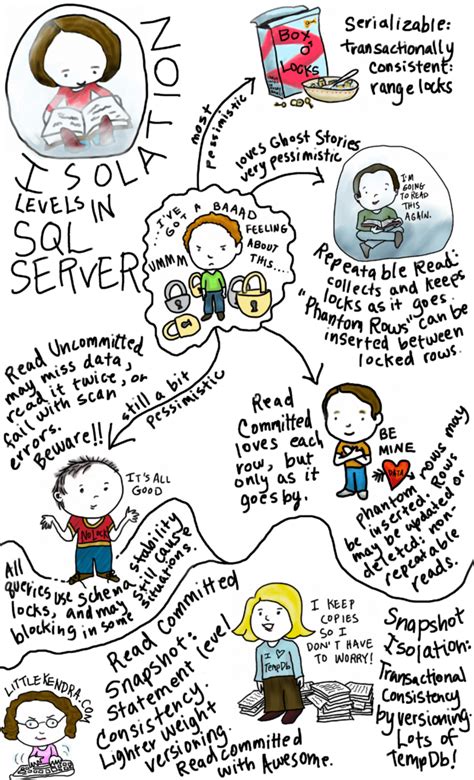 ISOLATION
LEVELS IN
SQL
SERVER
BOX
O'
LOCKS
Serializable:
transactionally
consistent:
range locks
most
pessimistic
loves Ghost Stories
very pessimistic
I'M
GOING
TO READ
THIS
AGAIN.
Repeatable Read:
collects and keeps
locks as it goes.
"Phantom Rows" can be
inserted between
locked rows.
...I'VE
GOT A BAAAD
FEELING
ABOUT
THIS....
UMMM
Read Uncommitted
may miss data,
read it twice, or
fail with scan
errors.
Beware!!
still a bit
pessimistic
IT'S ALL
GOOD
NOLOCK
All
queries use schema stability
locks, and may still cause
blocking in some situations.
Read
Committed
loves each
row, but
only as it
goes by.
BE
MINE
DATA
Phantom rows may
be inserted. Rows
may be updated or
deleted: non-
repeatable
reads.
Read Committed
Snapshot:
Statement level
Consistency.
Lighter weight
versioning.
Read committed
with Awesome.
I ♥
TempDb
I KEEP
COPIES
SO I
DON'T HAVE
TO WORRY!
Snapshot
Isolation:
Transactional
Consistency
by versioning.
Lots of
TempDb!
LITTLEKENDRA.COM